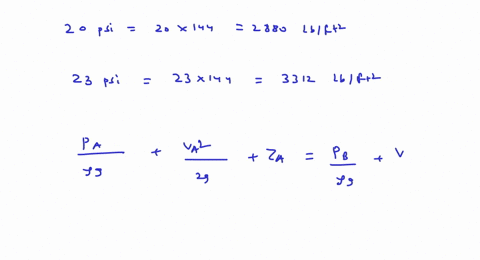 20 psi = 20 × 144 = 2880 lb/ft2
23 psi = 23 × 144 = 3312 lb/ft2
P_A/ρg + V_A²/2g + Z_A = P_B/ρg + V